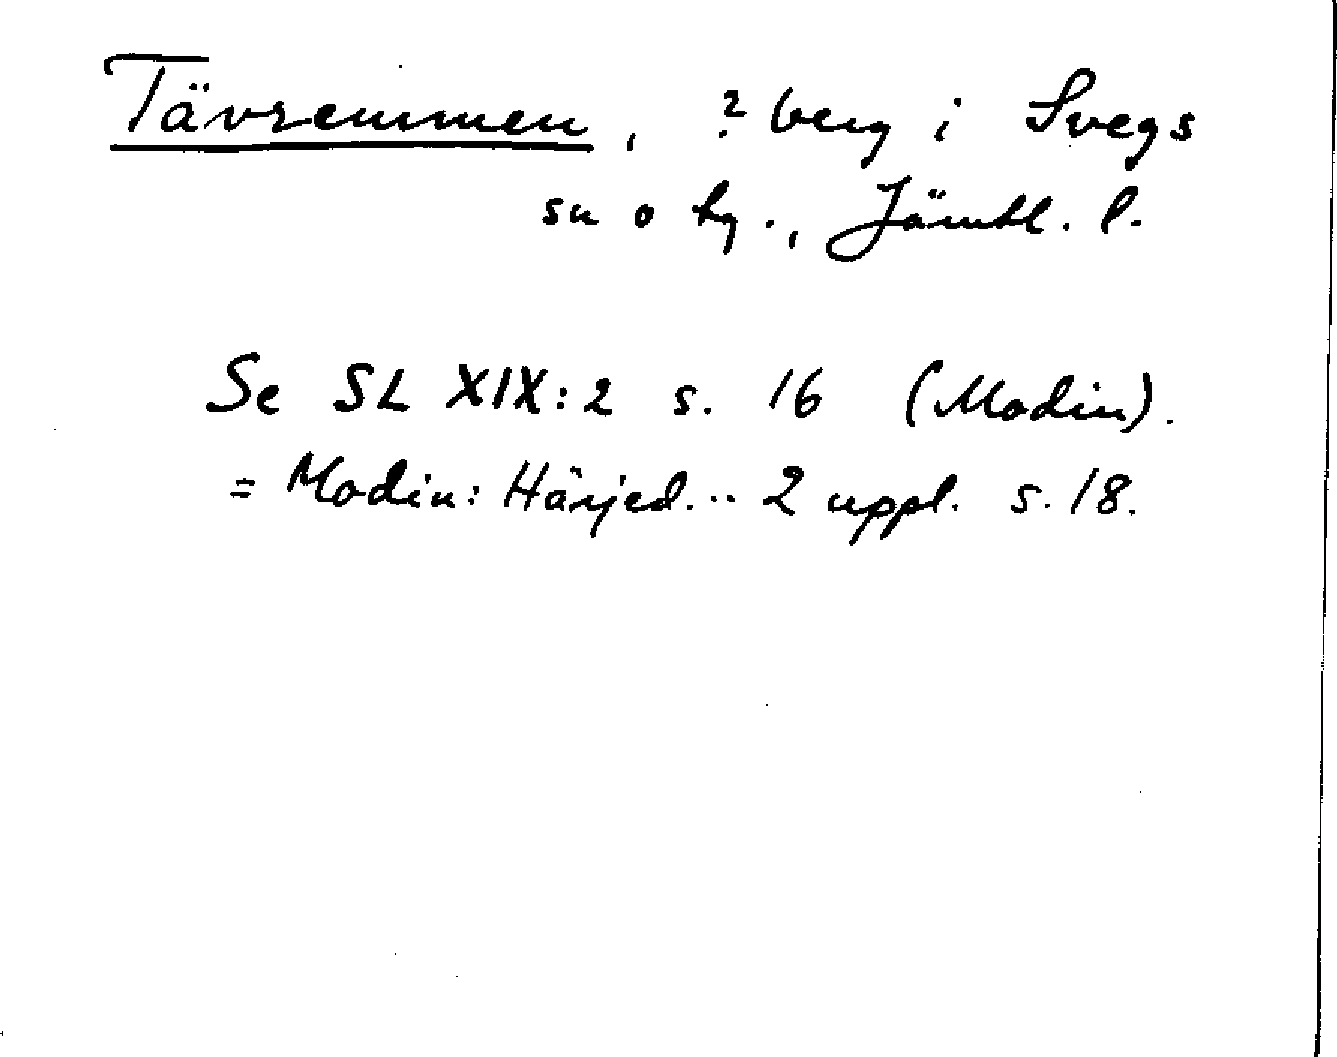 Tävremmen, ? berg i Svegs
sn o tg., Jämtl. l.
Se SL XIX:2 s. 16 (Modin).
= Modin: Härjed... 2 uppl. s. 18.